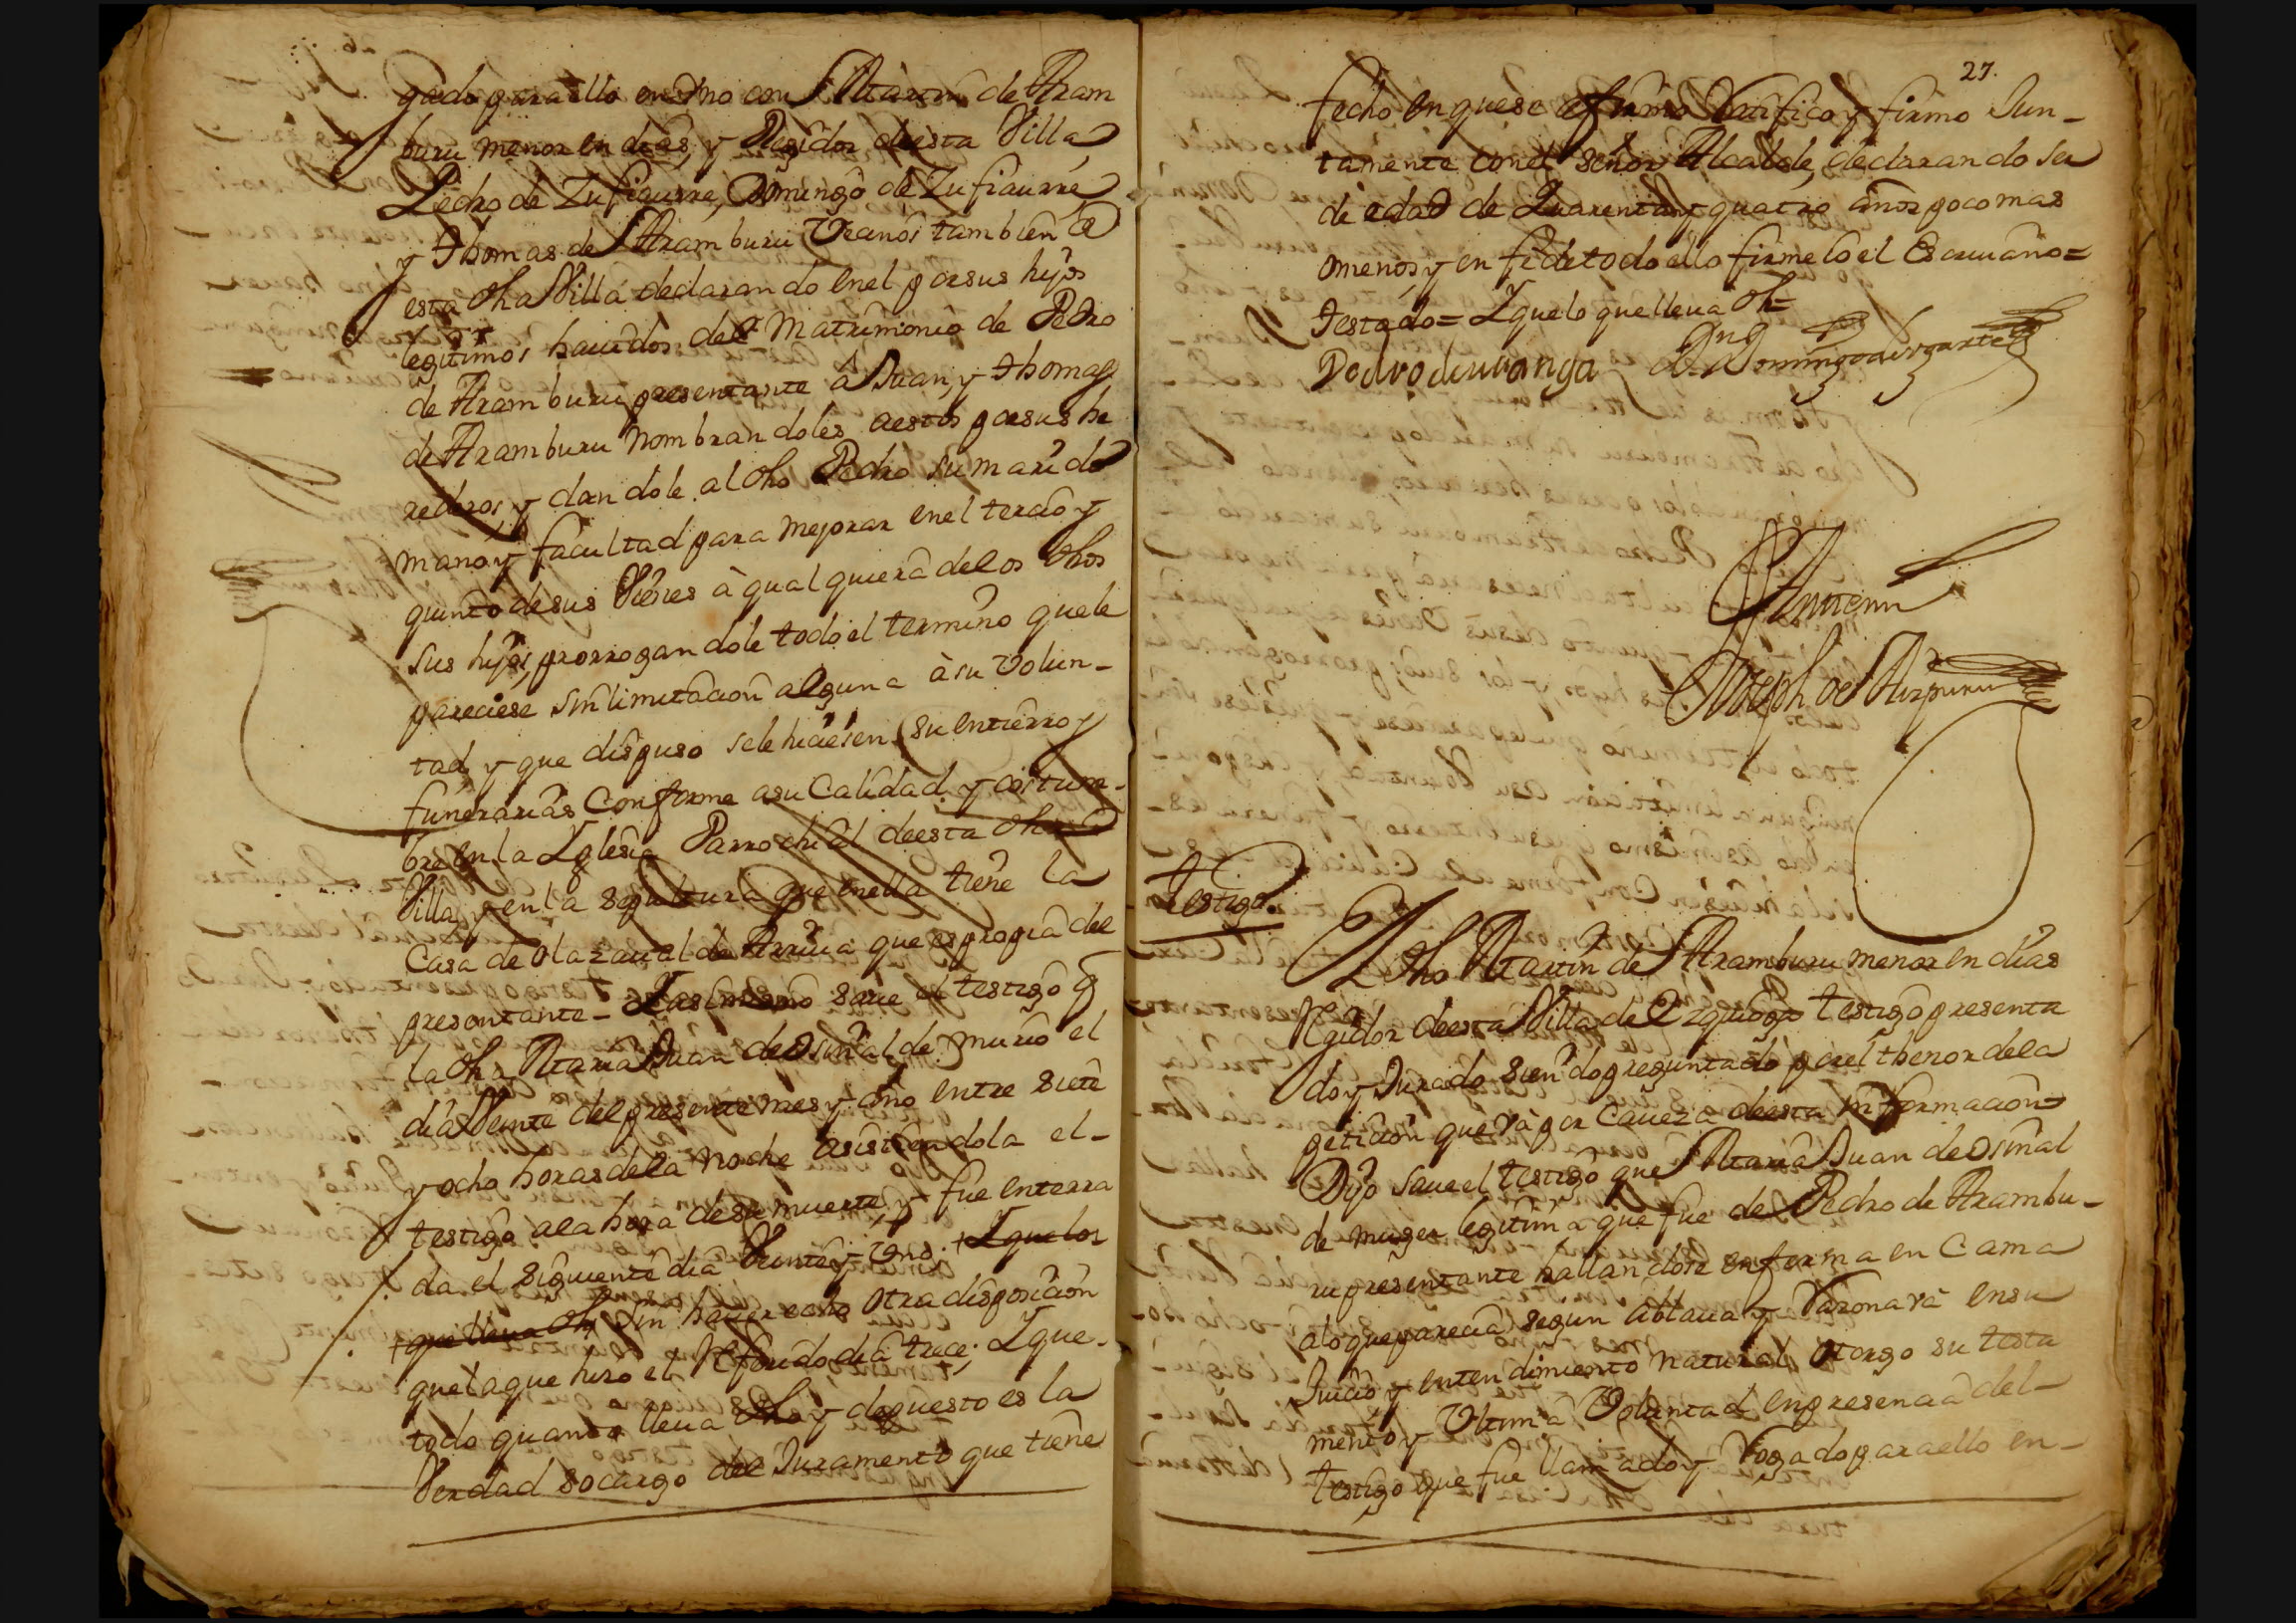 gado para ello en Vno con Martin de Aram
buru menor en dias, y Regidor de esta Villa
Pedro de Zufiaurre, Domingo de Zufiaurre
y Thomas de Aramburu Vecinos tambien de
esta dha Villa declarando en el por sus hijos
legitimos hauidos del Matrimonio de Pedro
de Aramburu presentante â Juan, y Thomas
de Aramburu nombrandoles aestos por sus he
rederos y dandole al dho Pedro su marido
mano y facultad para mejorar en el tercio y
quinto de sus Vienes à qualquiera de los dhos
sus hijos, prorrogandole todo el termino que le
pareciese sin limitacion alguna à su Volun-
tad, y que dispuso se le hiciesen su entierro y
funerarias Conforme asu Calidad y costum-
bre en la Iglesia Parrochial de esta dha
Villa, y en la sepultura que en ella tiene la
Casa de Olazaual de Arriua que es propia del
presentante- Y asimismo saue el testigo q
la dha Maria Juan de Osinalde murio el
dia Veinte del presente mes y año entre siete
y ocho horas de la noche asistiendola el-
testigo ala hora de su muerte, y fue enterra
da el siguiente dia Veinte y Vno. + Y que lo
+ que lleua dho sin hauer echo otra disposicion
que la que hizo el Referido dia trece; Y que-
todo quanto lleua dho y depuesto es la
Verdad socargo del Juramento que tiene
27.
fecho en que se afirmo Ratifico y firmo Jun-
tamente con el señor Alcalde, declarando ser
de edad de Quarenta y quatro años poco mas
omenos, y en fe de todo ello firme Yo el Escriuano=
Testado= Y que lo que lleua dh=
Pedro de uranga Domingo de Ugarte
Antemi
Joseph de Aizpuru
Testigo.
El dho Martin de Aramburu menor en dias
Regidor de esta Villa de Ezquioga testigo presenta
do y Jurado siendo preguntado por el thenor de la
peticion que và por Caueza de esta informacion
Dijo saue el testigo que Maria Juan de Osinal
de muger legitima que fue de Pedro de Arambu-
ru presentante hallandose enferma en Cama
alo que parecia segun ablaua y Razonava en su
Juicio y entendimiento natural otorgo su testa
mento y Vltima Voluntad en presencia del-
testigo que fue llamado y Rogado para ello en-